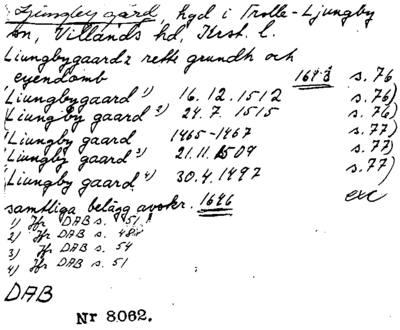 Ljungby gård, hgd i Trolle-Ljungby
sn, Villands hd, Krst. l.
Liungbygaardz rette grundh och
eyendomb 1683 s. 76
Liungbygaard 1) 16.12.1512 s. 76)
Liungby gaard 2) 24.7. 1515 s. 76)
Liungby gaard 1465-1467 s. 77)
Liungby gaard 3) 21.11.1509 s. 77)
Liungby gaard 4) 30.4.1497 s. 77)
samtliga belägg avskr. 1696 exc
1) Jfr DAB s. 51
2) Jfr DAB s.
3) Jfr DAB s. 54
4) Jfr DAB s. 51
DAB
Nr 8062.